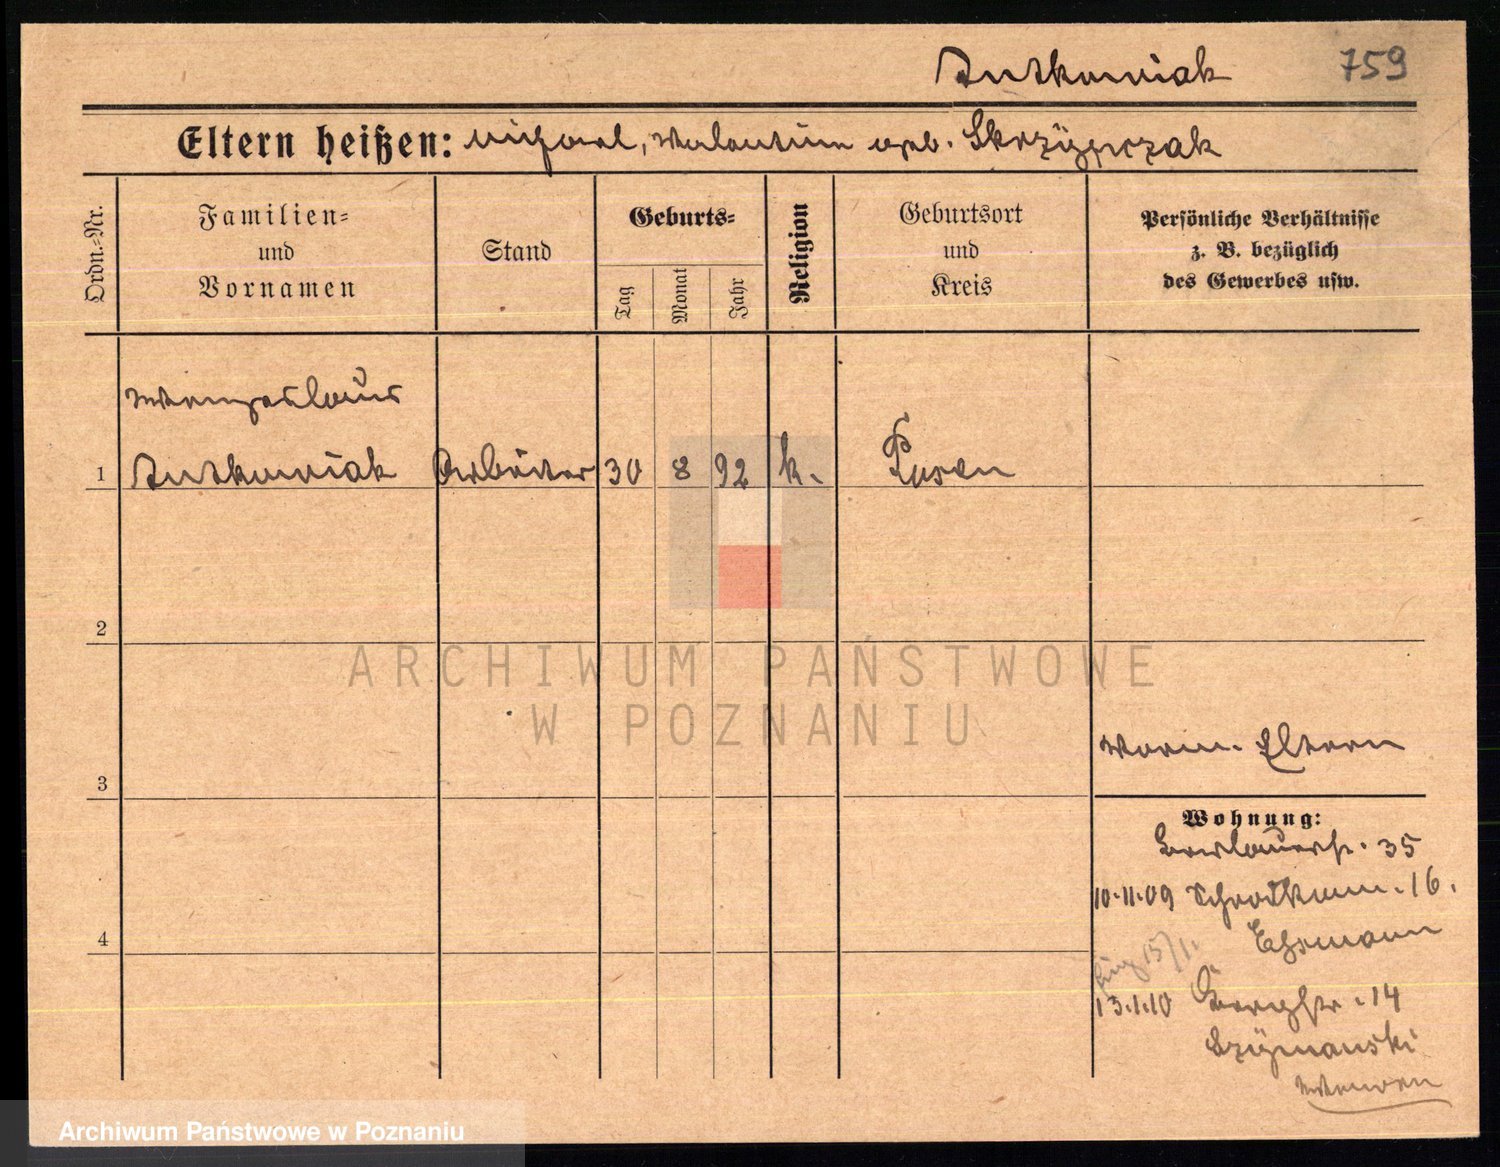 Antkowiak 759
Eltern heißen: Michael, Valentine geb. Skrzypczak
Ordn.-Nr.
Familien-
und
Vornamen
Stand
Geburts-
Tag
Monat
Jahr
Religion
Geburtsort
und
Kreis
Persönliche Verhältnisse
z. B. bezüglich
des Gewerbes usw.
Wenzeslaus
1 Antkowiak Arbeiter 30 8 92 k. Posen
2
ARCHIWUM PAŃSTWOWE
W POZNANIU
Eltern
3
Wohnung:
35
10.11.09 16.
4
15/1.
13.1.10 14
Szymanski
Archiwum Państwowe w Poznaniu